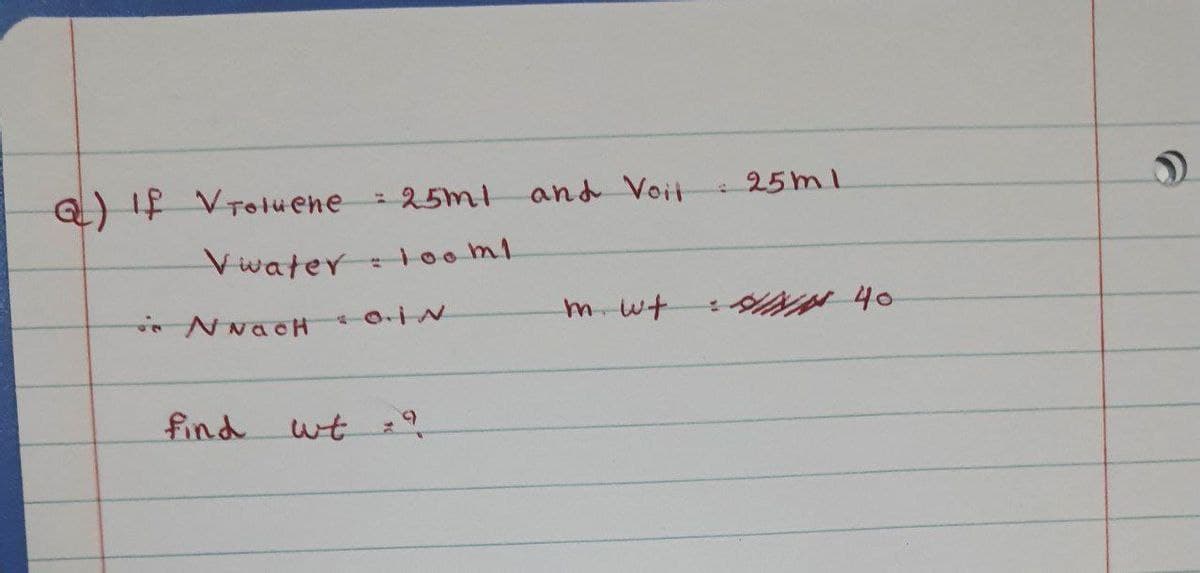 Q) If VToluene = 25ml and Voil = 25ml
Vwater = 100 ml
∴ NNaOH = 0.1N m. wt = 40
find wt = ?